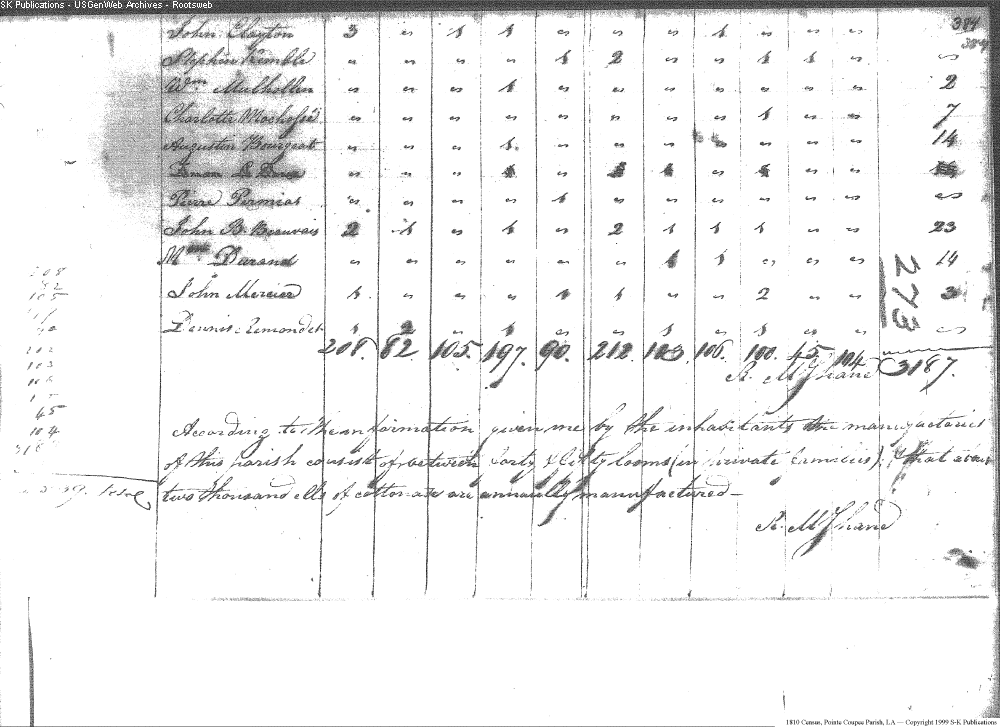 SK Publications - USGenWeb Archives - Rootsweb
384
John Clayton 3 " 1 1 " " " 1 " " "
Stephen Kemble " " " " 1 2 " " 1 1 " "
Wm Mulhollen " " " 1 " " " " " " " 2
Charlotte " " " " " " " " 1 " " 7
Augustin Bourgeat " " " 1 " " " " " " 14
" " "
Pierre " " " " 1 " " " " " " "
John B. Beauvais 2 1 " 1 " 2 1 1 1 " " 23
Mme Durand " " " " " " 1 1 " " " 14
John Mercier 1 " " " 1 1 " " 2 " " 3
Dennis 1 2 " 1 " " 1 " 1 " " "
273
208. 82. 105. 197. 90. 212. 103. 106. 100. 45. 104 3187.
R. McShane
According to the information given me by the inhabitants the manufactories
of this parish consist of between forty & fifty looms (in private families), that about
two thousand ells of cottonade are annually manufactured —
R. McShane
208
82
105
90
212
103
106
45
104
1810 Census, Pointe Coupee Parish, LA — Copyright 1999 S-K Publications